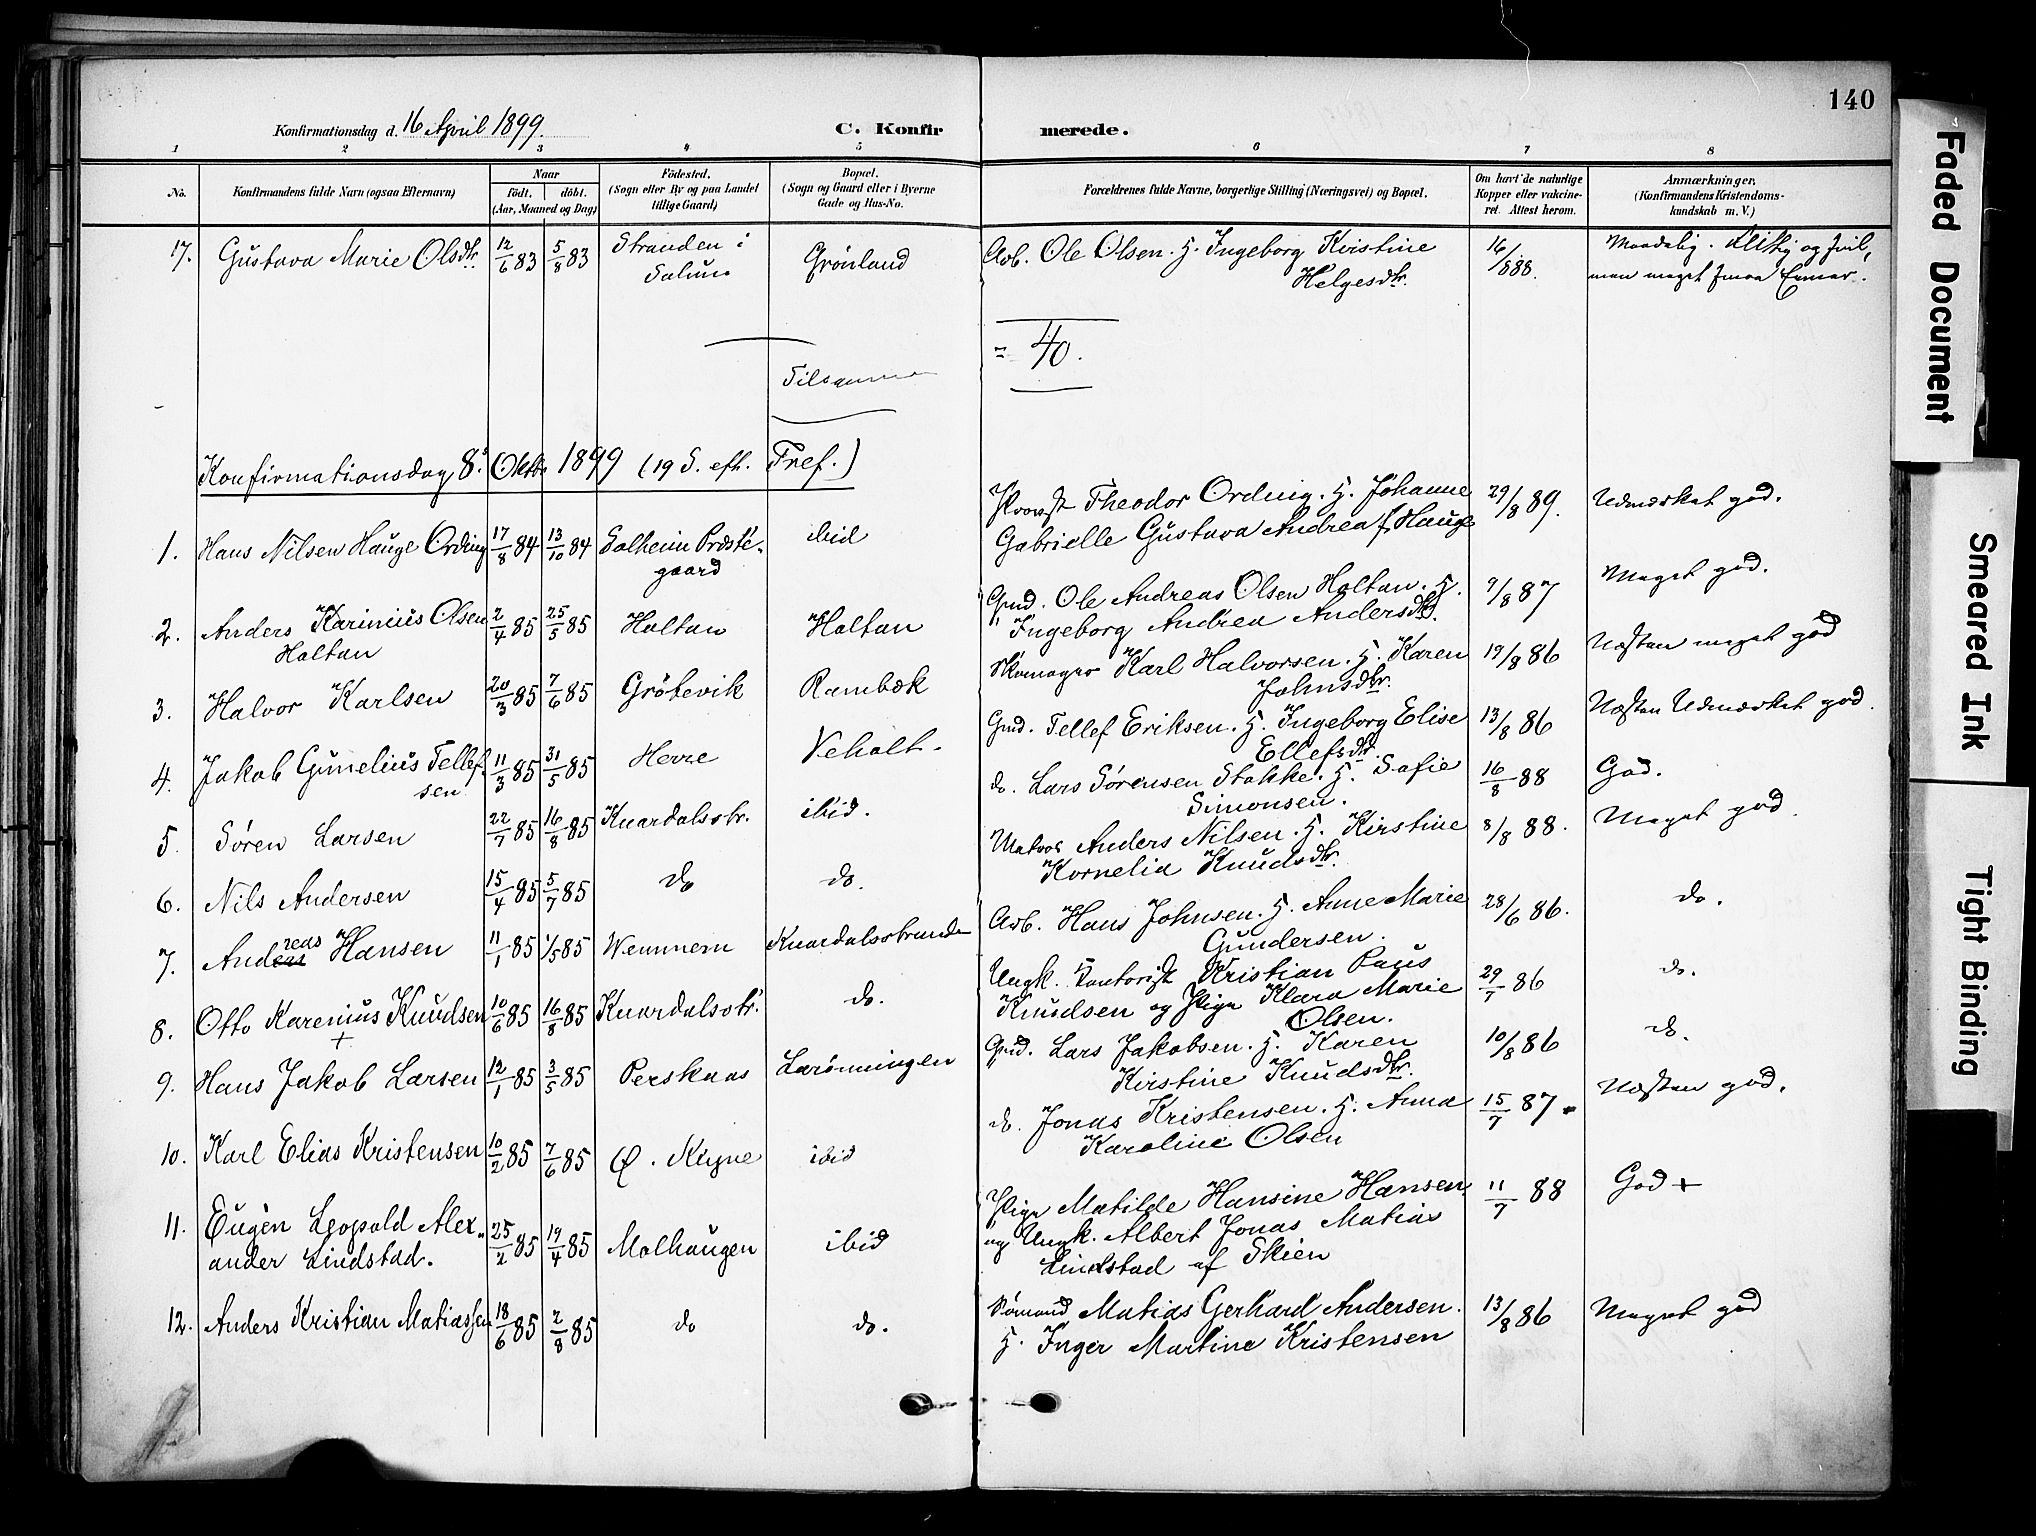 140
Konfirmationsdag d. 16 April 1899.
C. Konfirmerede.
1 2 3 4 5 6 7 8
No.
Konfirmandens fulde Navn (ogsaa Efternavn)
Naar
født. døbt.
(Aar, Maaned og Dag)
Fødested.
(Sogn eller By og paa Landet
tillige Gaard)
Bopæl.
(Sogn og Gaard eller i Byerne
Gade og Hus-No.
Forældrenes fulde Navne, borgerlige Stilling (Næringsvei) og Bopæl.
Om havt de naturlige
Kopper eller vakcine-
ret. Attest herom.
Anmærkninger,
(Konfirmandens Kristendoms-
kundskab m. V.)
17. Gustava Marie Olsdtr. 12/6 83 5/8 83 Stranden i Solum Grønland Arb. Ole Olsen. H. Ingeborg Kristine
Helgesdtr. 16/8 88. Maadelig. Flittig og snil,
men meget smaa Evner.
Tilsammen = 40.
Konfirmationsdag 8. Oktbr 1899 (19 S. eft. Tref.)
1. Hans Nilsen Hauge Ording 17/8 84 13/10 84 Solheim Præste-
gaard ibid Provst Theodor Ording. H. Johanne
Gabrielle Gustava Andrea f. Hauge 29/8 89. Udmærket god.
2. Anders Karinius Olsen
Holtan 2/4 85 25/5 85 Holtan Holtan Gmd. Ole Andreas Olsen Holtan. H.
Ingeborg Andrea Andersdtr. 9/8 87 Meget god.
3. Halvor Karlsen 20/3 85 7/6 85 Grøtevik Rambæk Skomager Karl Halvorsen. H. Karen
Johnsdtr. 19/8 86 Næsten meget god
4. Jakob Gunelius Tellef-
sen 11/3 85 31/5 85 Herre Veholt. Gmd. Tellef Eriksen. H. Ingeborg Elise
Ellefsdtr. 13/8 86 Næsten Udmærket god.
5. Søren Larsen 22/7 85 16/8 85 Knardalsstr. ibid. do. Lars Sørensen Stokke. H. Sofie
Simonsen. 16/8 88 God.
6. Nils Andersen 15/4 85 5/7 85 do do. Matros Anders Nilsen. H. Kirstine
Kornelia Knudsdtr. 8/8 88. Meget god.
7. Andreas Hansen 11/1 85 1/5 85 Wemmern Knardalsstranden Arb. Hans Johnsen. H. Anne Marie
Gundersen. 28/6 86. do.
8. Otto Karenius Knudsen
+ 10/6 85 16/8 85 Knardalsstr. do. Ungk. Kontorist Kristian Paus
Knudsen og Pige Klara Marie
Olsen. 29/7 86 do.
9. Hans Jakob Larsen 12/1 85 3/5 85 Perskaas Larønningen Gmd. Lars Jakobsen. H. Karen
Kirstine Knudsdtr. 10/8 86 do.
10. Karl Elias Kristensen 10/2 85 7/6 85 Ø. Kigne ibid do. Jonas Kristensen. H. Anna
Karoline Olsen 15/7 87 Næsten god.
11. Eugén Leopold Alex-
ander Lindstad. 25/2 85 19/4 85 Molhaugen ibid Pige Matilde Hansine Hansen
og Ungk. Albert Jonas Matias
Lindstad af Skien 11/7 88 God +
12. Anders Kristian Matiassen 18/6 85 2/8 85 do do. Sømand Matias Gerhard Andersen.
H. Inger Martine Kristensen 13/8 86 Meget god
Faded Document
Smeared Ink
Tight Binding